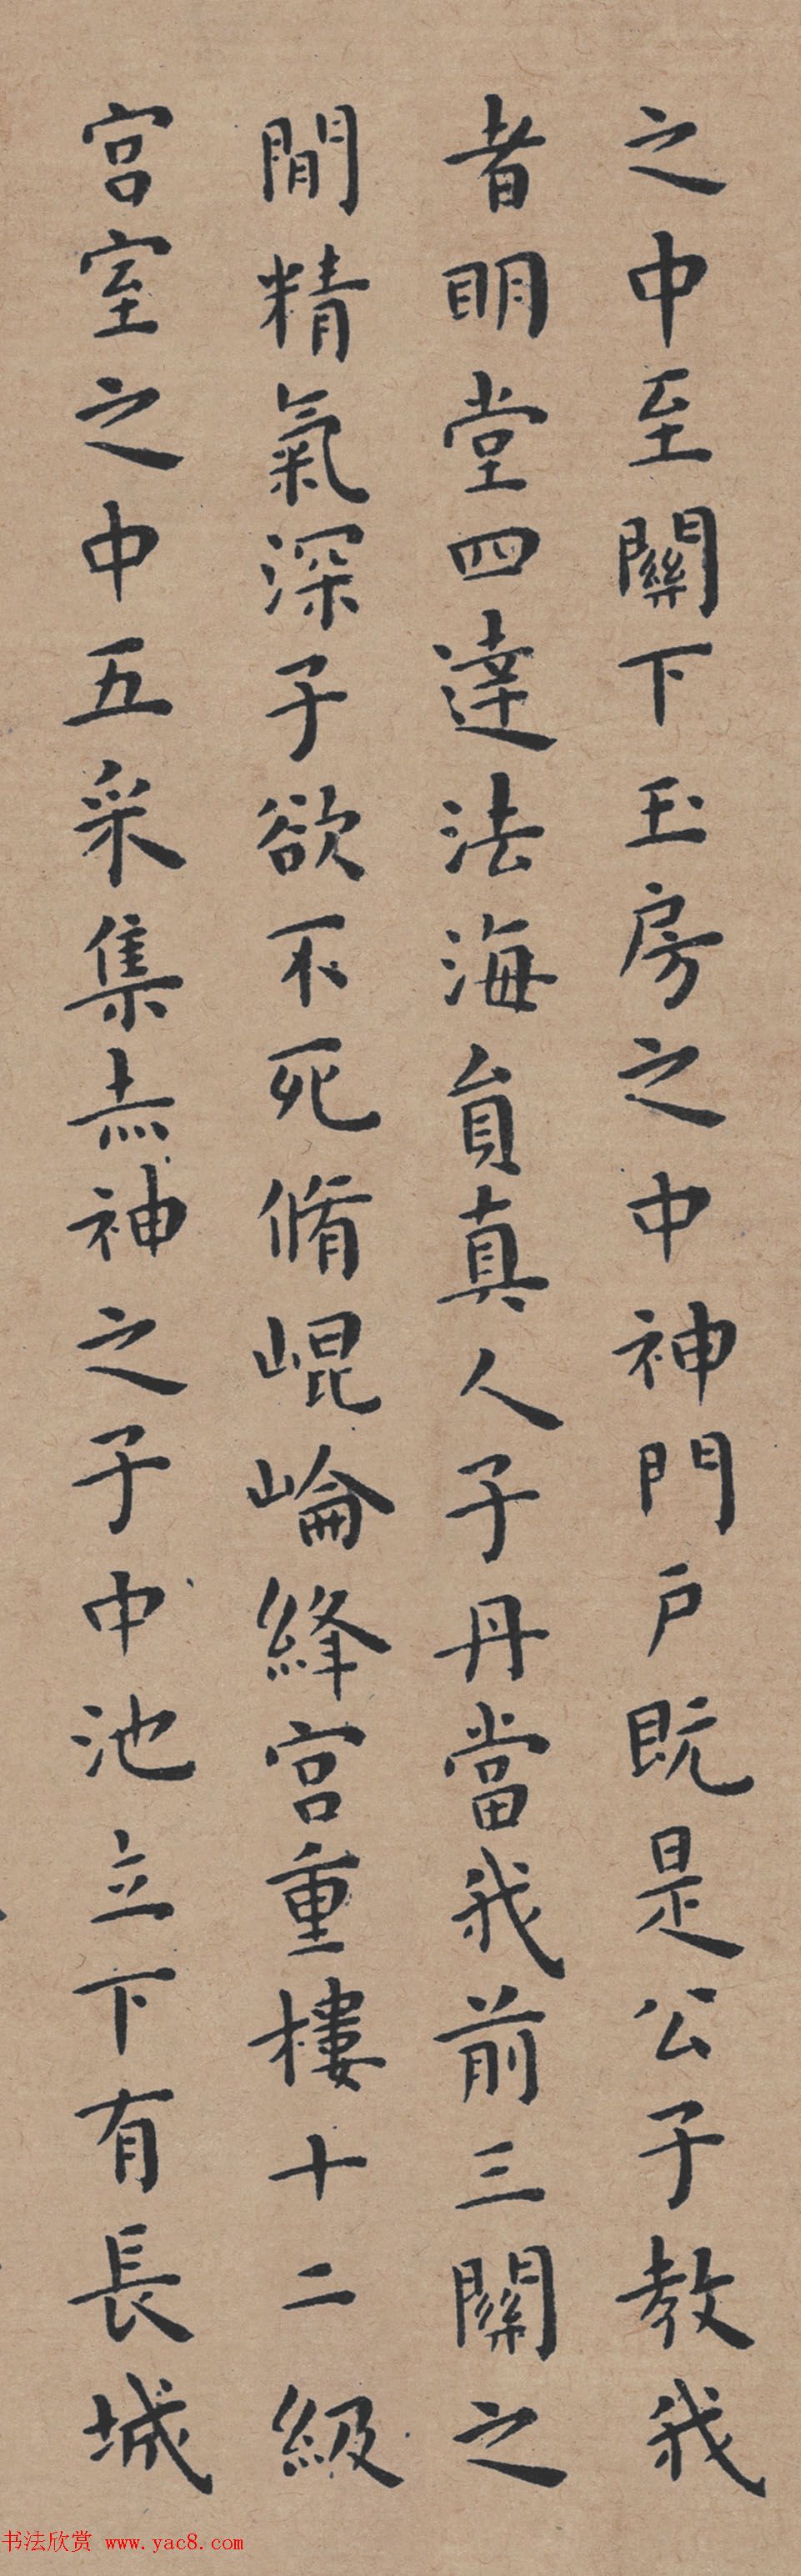 之中至關下玉房之中神門户既是公子教我
者明堂四達法海員真人子丹當我前三關之
間精氣深子欲不死脩崐崘絳宫重樓十二級
宫室之中五采集赤神之子中池立下有長城
书法欣赏 www.yac8.com